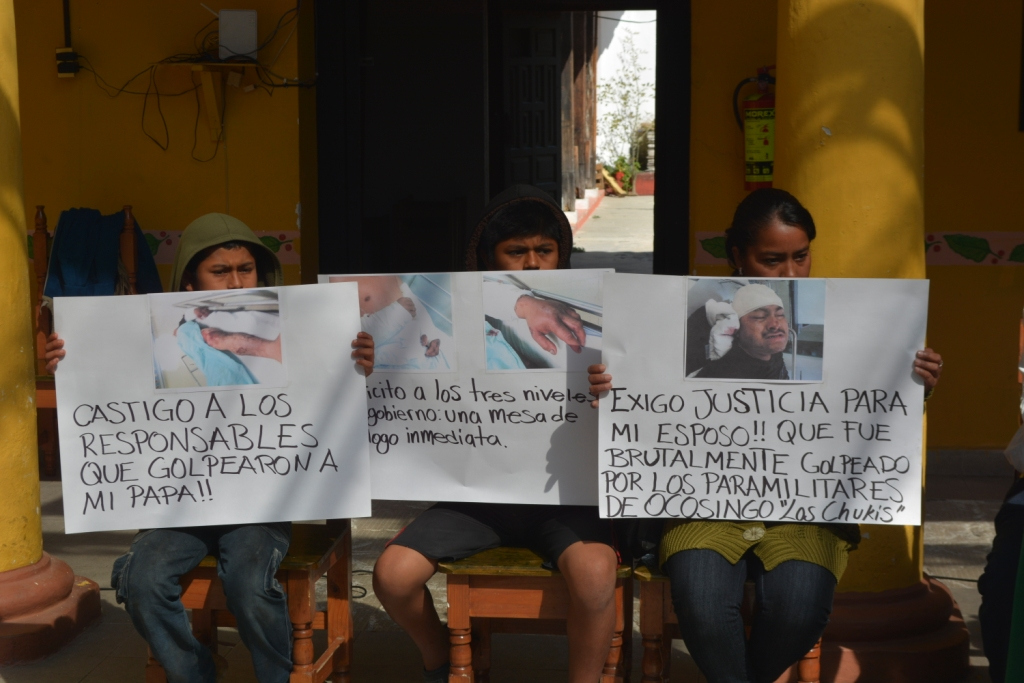 CASTIGO A LOS
RESPONSABLES
QUE GOLPEARON A
MI PAPA!!
icito a los tres niveles
gobierno: una mesa de
logo inmediata.
EXIGO JUSTICIA PARA
MI ESPOSO!! QUE FUE
BRUTALMENTE GOLPEADO
POR LOS PARAMILITARES
DE OCOSINGO "Los Chukis"